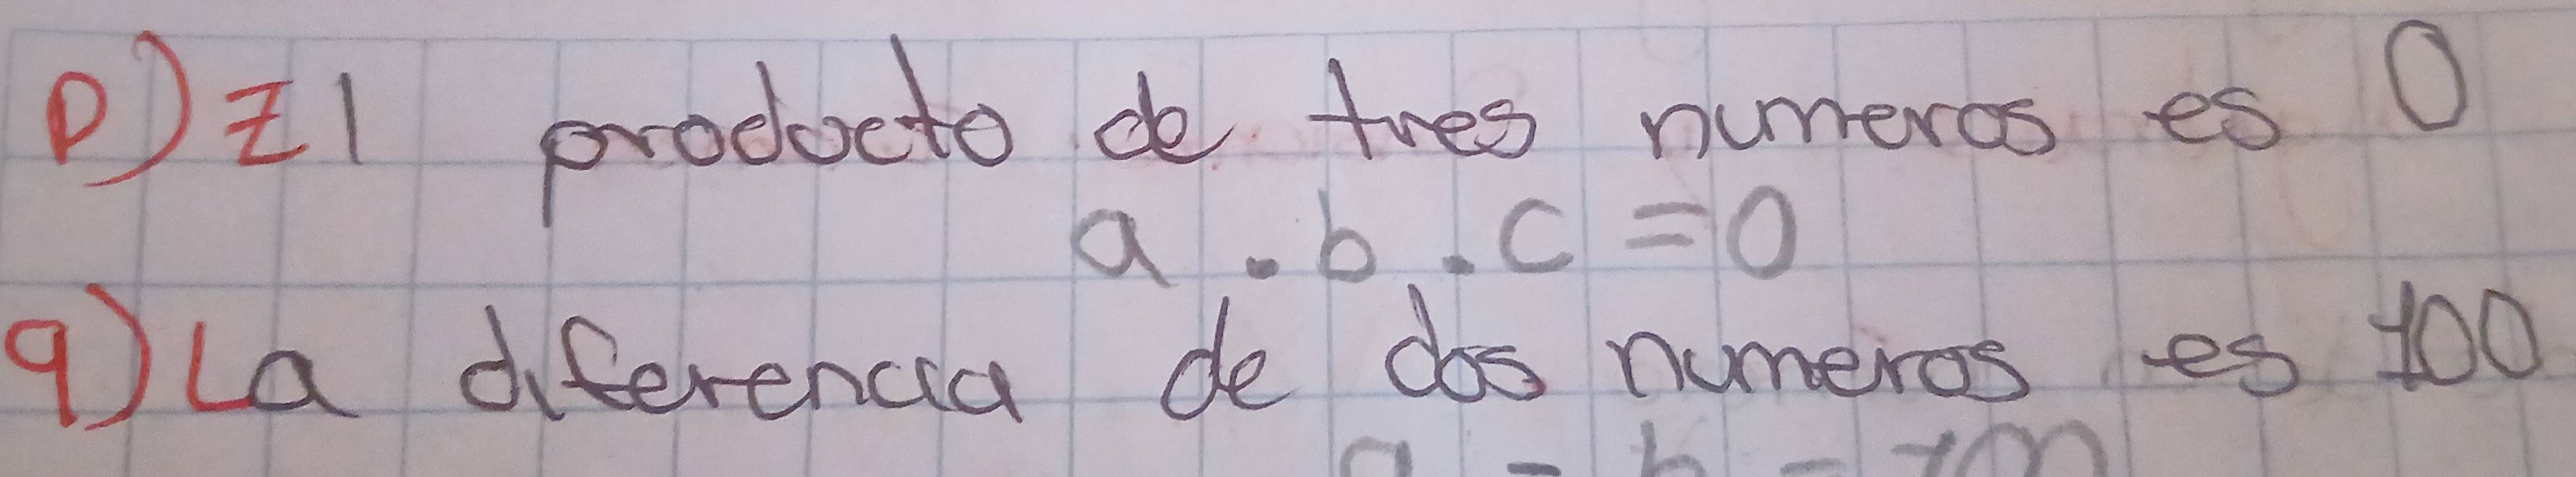 P) El producto de tres numeros es 0
a . b . c = 0
q) La diferencia de dos numeros es 100
a - b = 100